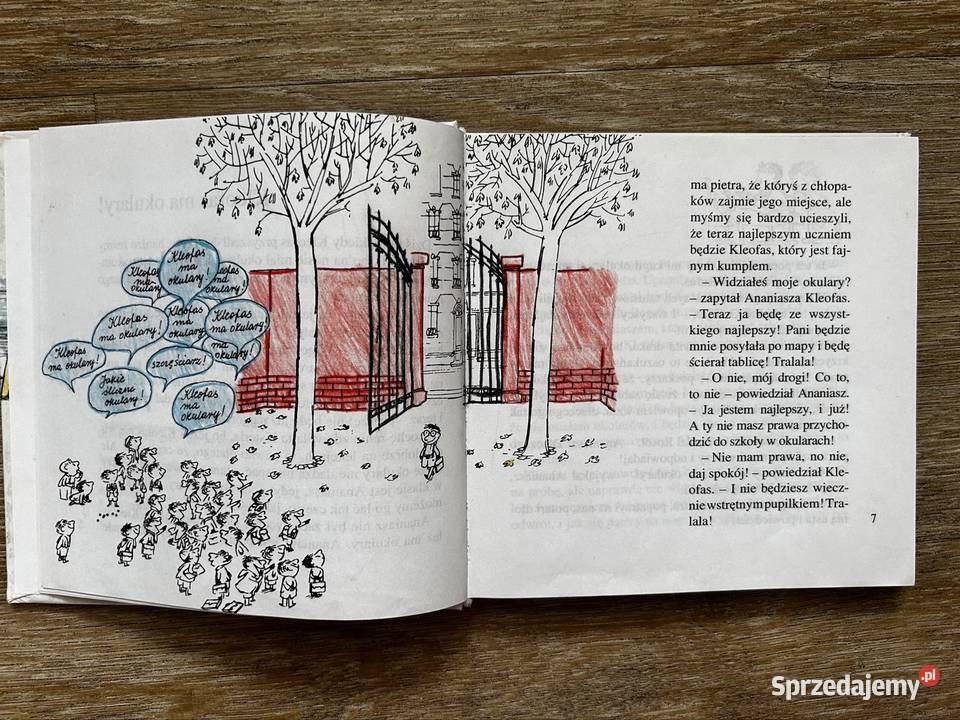 Kleofas
ma
okulary!
Kleofas
ma
okulary!
Kleofas
ma
okulary!
Kleofas
ma okulary!
Kleofas
ma
okulary!
Kleofas
ma okulary!
Kleofas
ma okulary!
szczęściarz!
Jakie
śliczne
okulary!
Kleofas
ma
okulary!
ma pietra, że któryś z chłopa-
ków zajmie jego miejsce, ale
myśmy się bardzo ucieszyli,
że teraz najlepszym uczniem
będzie Kleofas, który jest faj-
nym kumplem.
– Widziałeś moje okulary?
– zapytał Ananiasza Kleofas.
– Teraz ja będę ze wszyst-
kiego najlepszy! Pani będzie
mnie posyłała po mapy i będę
ścierał tablicę! Tralala!
– O nie, mój drogi! Co to,
to nie – powiedział Ananiasz.
– Ja jestem najlepszy, i już!
A ty nie masz prawa przycho-
dzić do szkoły w okularach!
– Nie mam prawa, no nie,
daj spokój! – powiedział Kle-
ofas. – I nie będziesz wiecz-
nie wstrętnym pupilkiem! Tra-
lala!
7
Sprzedajemy.pl